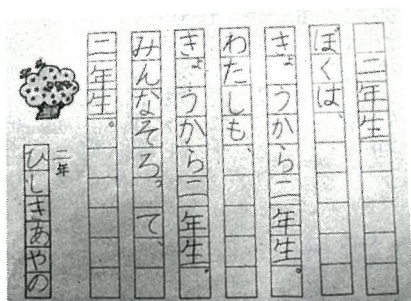 二年生
ぼくは、
きょうから二年生。
わたしも、
きょうから二年生。
みんなそろって、
二年生。
二年
ひしきあやの